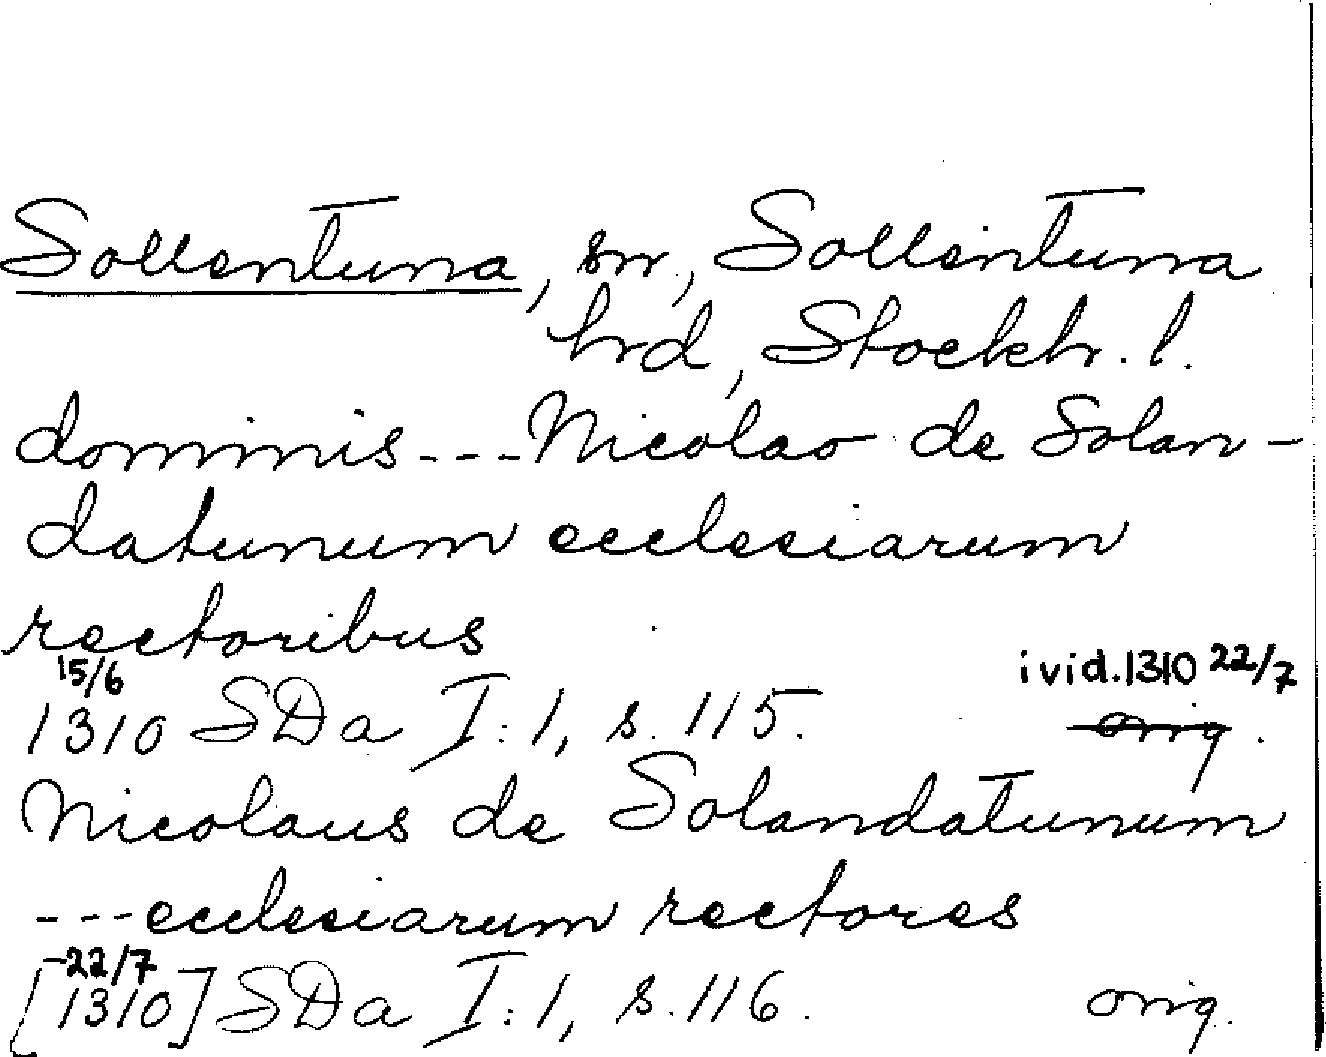 Sollentuna, sn., Sollentuna
hrd, Stockh. l.
dominis --- Nicolao de Solan-
datunum ecclesiarum
rectoribus
15/6 i vid. 1310 22/7
1310 SDa I:1, s. 115. orig.
Nicolaus de Solandatunum
--- ecclesiarum rectores
-22/7
[1310] SDa I:1, s. 116. orig.